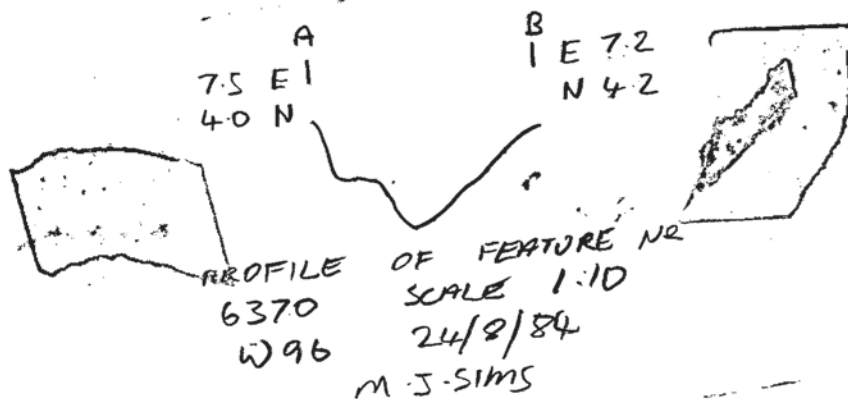 A
B
7.5 E
4.0 N
E 7.2
N 4.2
PROFILE OF FEATURE No
6370 SCALE 1:10
W96 24/8/84
M.J.SIMS